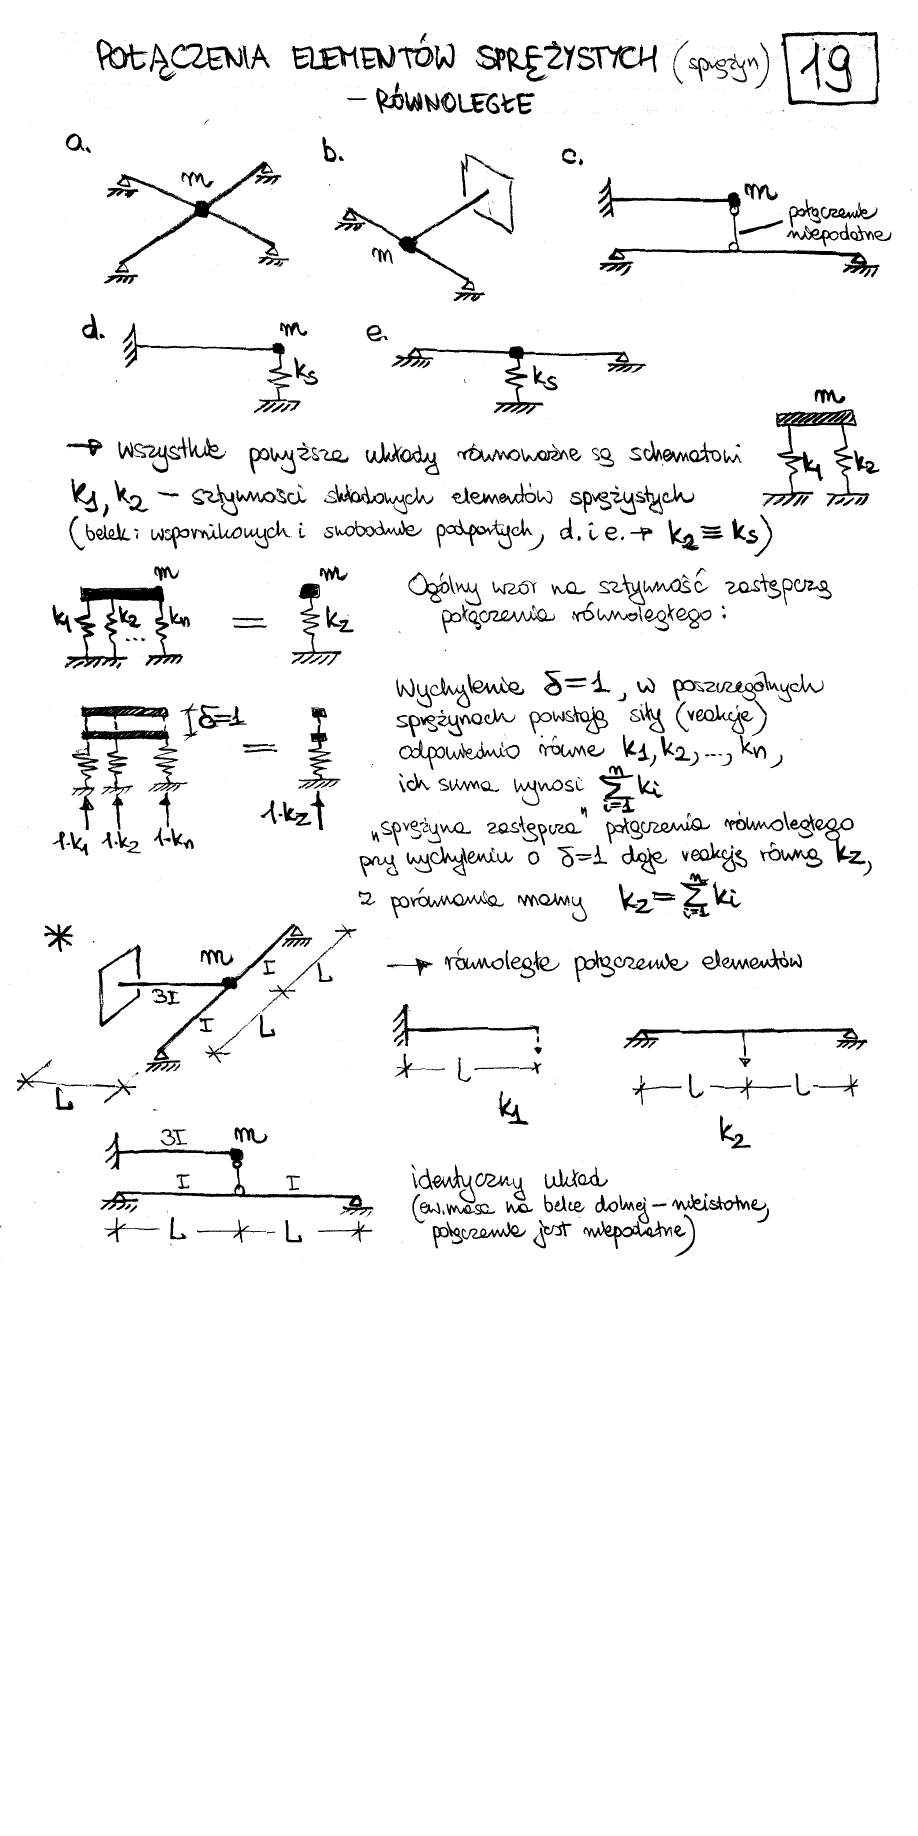 POŁĄCZENIA ELEMENTÓW SPRĘŻYSTYCH (sprężyn) 19
– RÓWNOLEGŁE
a. b. c.
m
m
m
połączenie
niepodatne
d. m e.
ks
ks
m
k1 k2
→ wszystkie powyższe układy równoważne są schematowi
k1, k2 – sztywności składowych elementów sprężystych
(belek: wspornikowych i swobodnie podpartych, d. i e. → k2 ≡ ks)
m m
k1 k2 ... kn = kz
Ogólny wzór na sztywność zastępczą
połączenia równoległego:
δ=1
=
1·k1 1·k2 1·kn 1·kz
Wychylenie δ=1, w poszczególnych
sprężynach powstają siły (reakcje)
odpowiednio równe k1, k2, ..., kn,
ich suma wynosi n∑i=1 ki
„sprężyna zastępcza" połączenia równoległego
przy wychyleniu o δ=1 daje reakcję równą kz,
z porównania mamy kz = n∑i=1 ki
*
m
3I I I
L L L
→ równoległe połączenie elementów
L
k1
L L
k2
3I m
I I
L L
identyczny układ
(ew. masa na belce dolnej – nieistotne,
połączenie jest niepodatne)